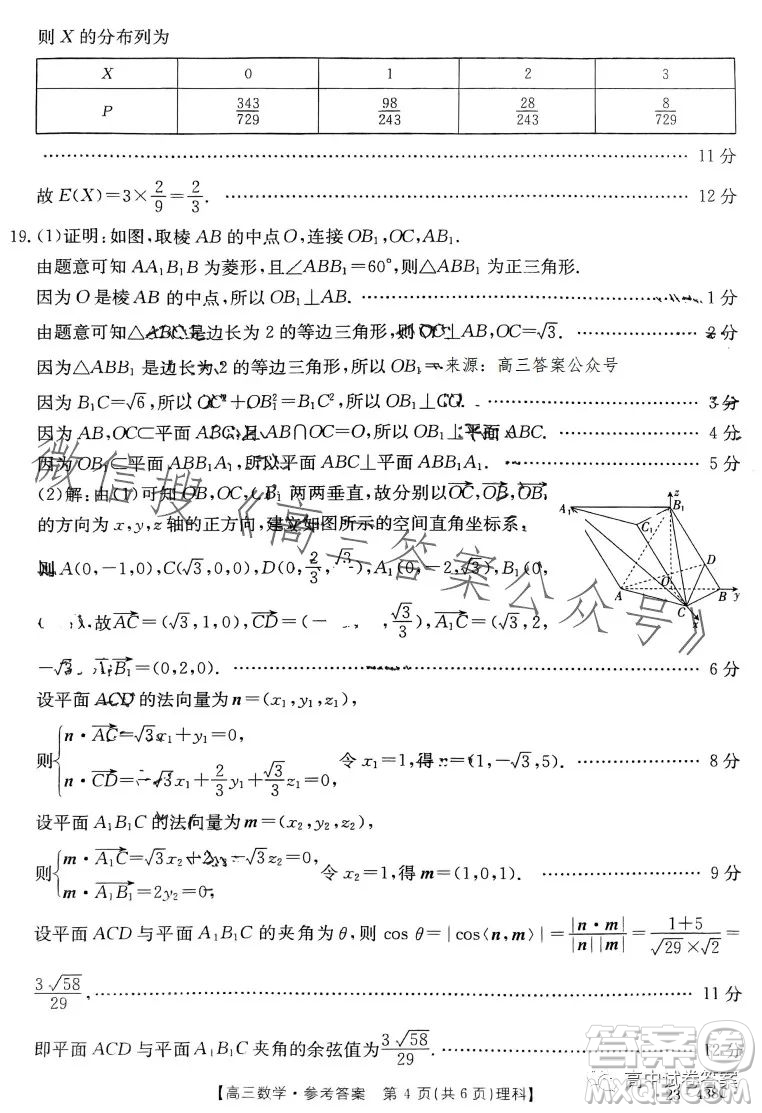 则 X 的分布列为
X 0 1 2 3
P 343/729 98/243 28/243 8/729
11 分
故 E(X)=3×2/9=2/3. 12 分
19.(1)证明:如图,取棱 AB 的中点 O,连接 OB₁,OC,AB₁.
由题意可知 AA₁B₁B 为菱形,且∠ABB₁=60°,则△ABB₁ 为正三角形.
因为 O 是棱 AB 的中点,所以 OB₁⊥AB. 1 分
由题意可知△ABC 是边长为 2 的等边三角形,则 OC⊥AB,OC=√3. 2 分
因为△ABB₁ 是边长为 2 的等边三角形,所以 OB₁ 来源:高三答案公众号
因为 B₁C=√6,所以 OC²+OB₁²= 所以 OB₁⊥OC. 3 分
因为 AB,OC⊂平面 ABC,且 ∩OC=O,所以 OB₁⊥平面 ABC. 4 分
因为 OB₁⊂平面 ABB₁A₁,所以平面 ABC⊥平面 ABB₁A₁. 5 分
(2)解:由(1)可知 OB,OC,OB₁ 两两垂直,故分别以OC,OB,OB₁
的方向为 x,y,z 轴的正方向,建立如图所示的空间直角坐标系,
则 A(0,-1,0),C(√3,0,0),D(0,2/3,√3/ ),A₁(0,-2,√3),B₁(0,
故AC=(√3,1,0),CD=(- , ,√3/3),A₁C=(√3,2,
-√3 A₁B₁=(0,2,0). 6 分
设平面 ACD 的法向量为 n=(x₁,y₁,z₁),
则{n·AC=√3x₁+y₁=0,
n·CD=-√3x₁+2/3y₁+√3/3z₁=0, 令 x₁=1,得 n=(1,-√3,5). 8 分
设平面 A₁B₁C 的法向量为 m=(x₂,y₂,z₂),
则{m·A₁C=√3x₂+2y₂-√3z₂=0,
m·A₁B₁=2y₂=0, 令 x₂=1,得 m=(1,0,1). 9 分
设平面 ACD 与平面 A₁B₁C 的夹角为 θ,则 cos θ=|cos⟨n,m⟩|=|n·m|/|n||m|=1+5/√29×√2=
3√58/29, 11 分
即平面 ACD 与平面 A₁B₁C 夹角的余弦值为3√58/29. 12 分
A₁ z B₁ C₁ D A O B y C x
微信搜《高三答案公众号》
答案圈
高中试卷答案
【高三数学·参考答案 第 4 页(共 6 页)理科】
23-438C